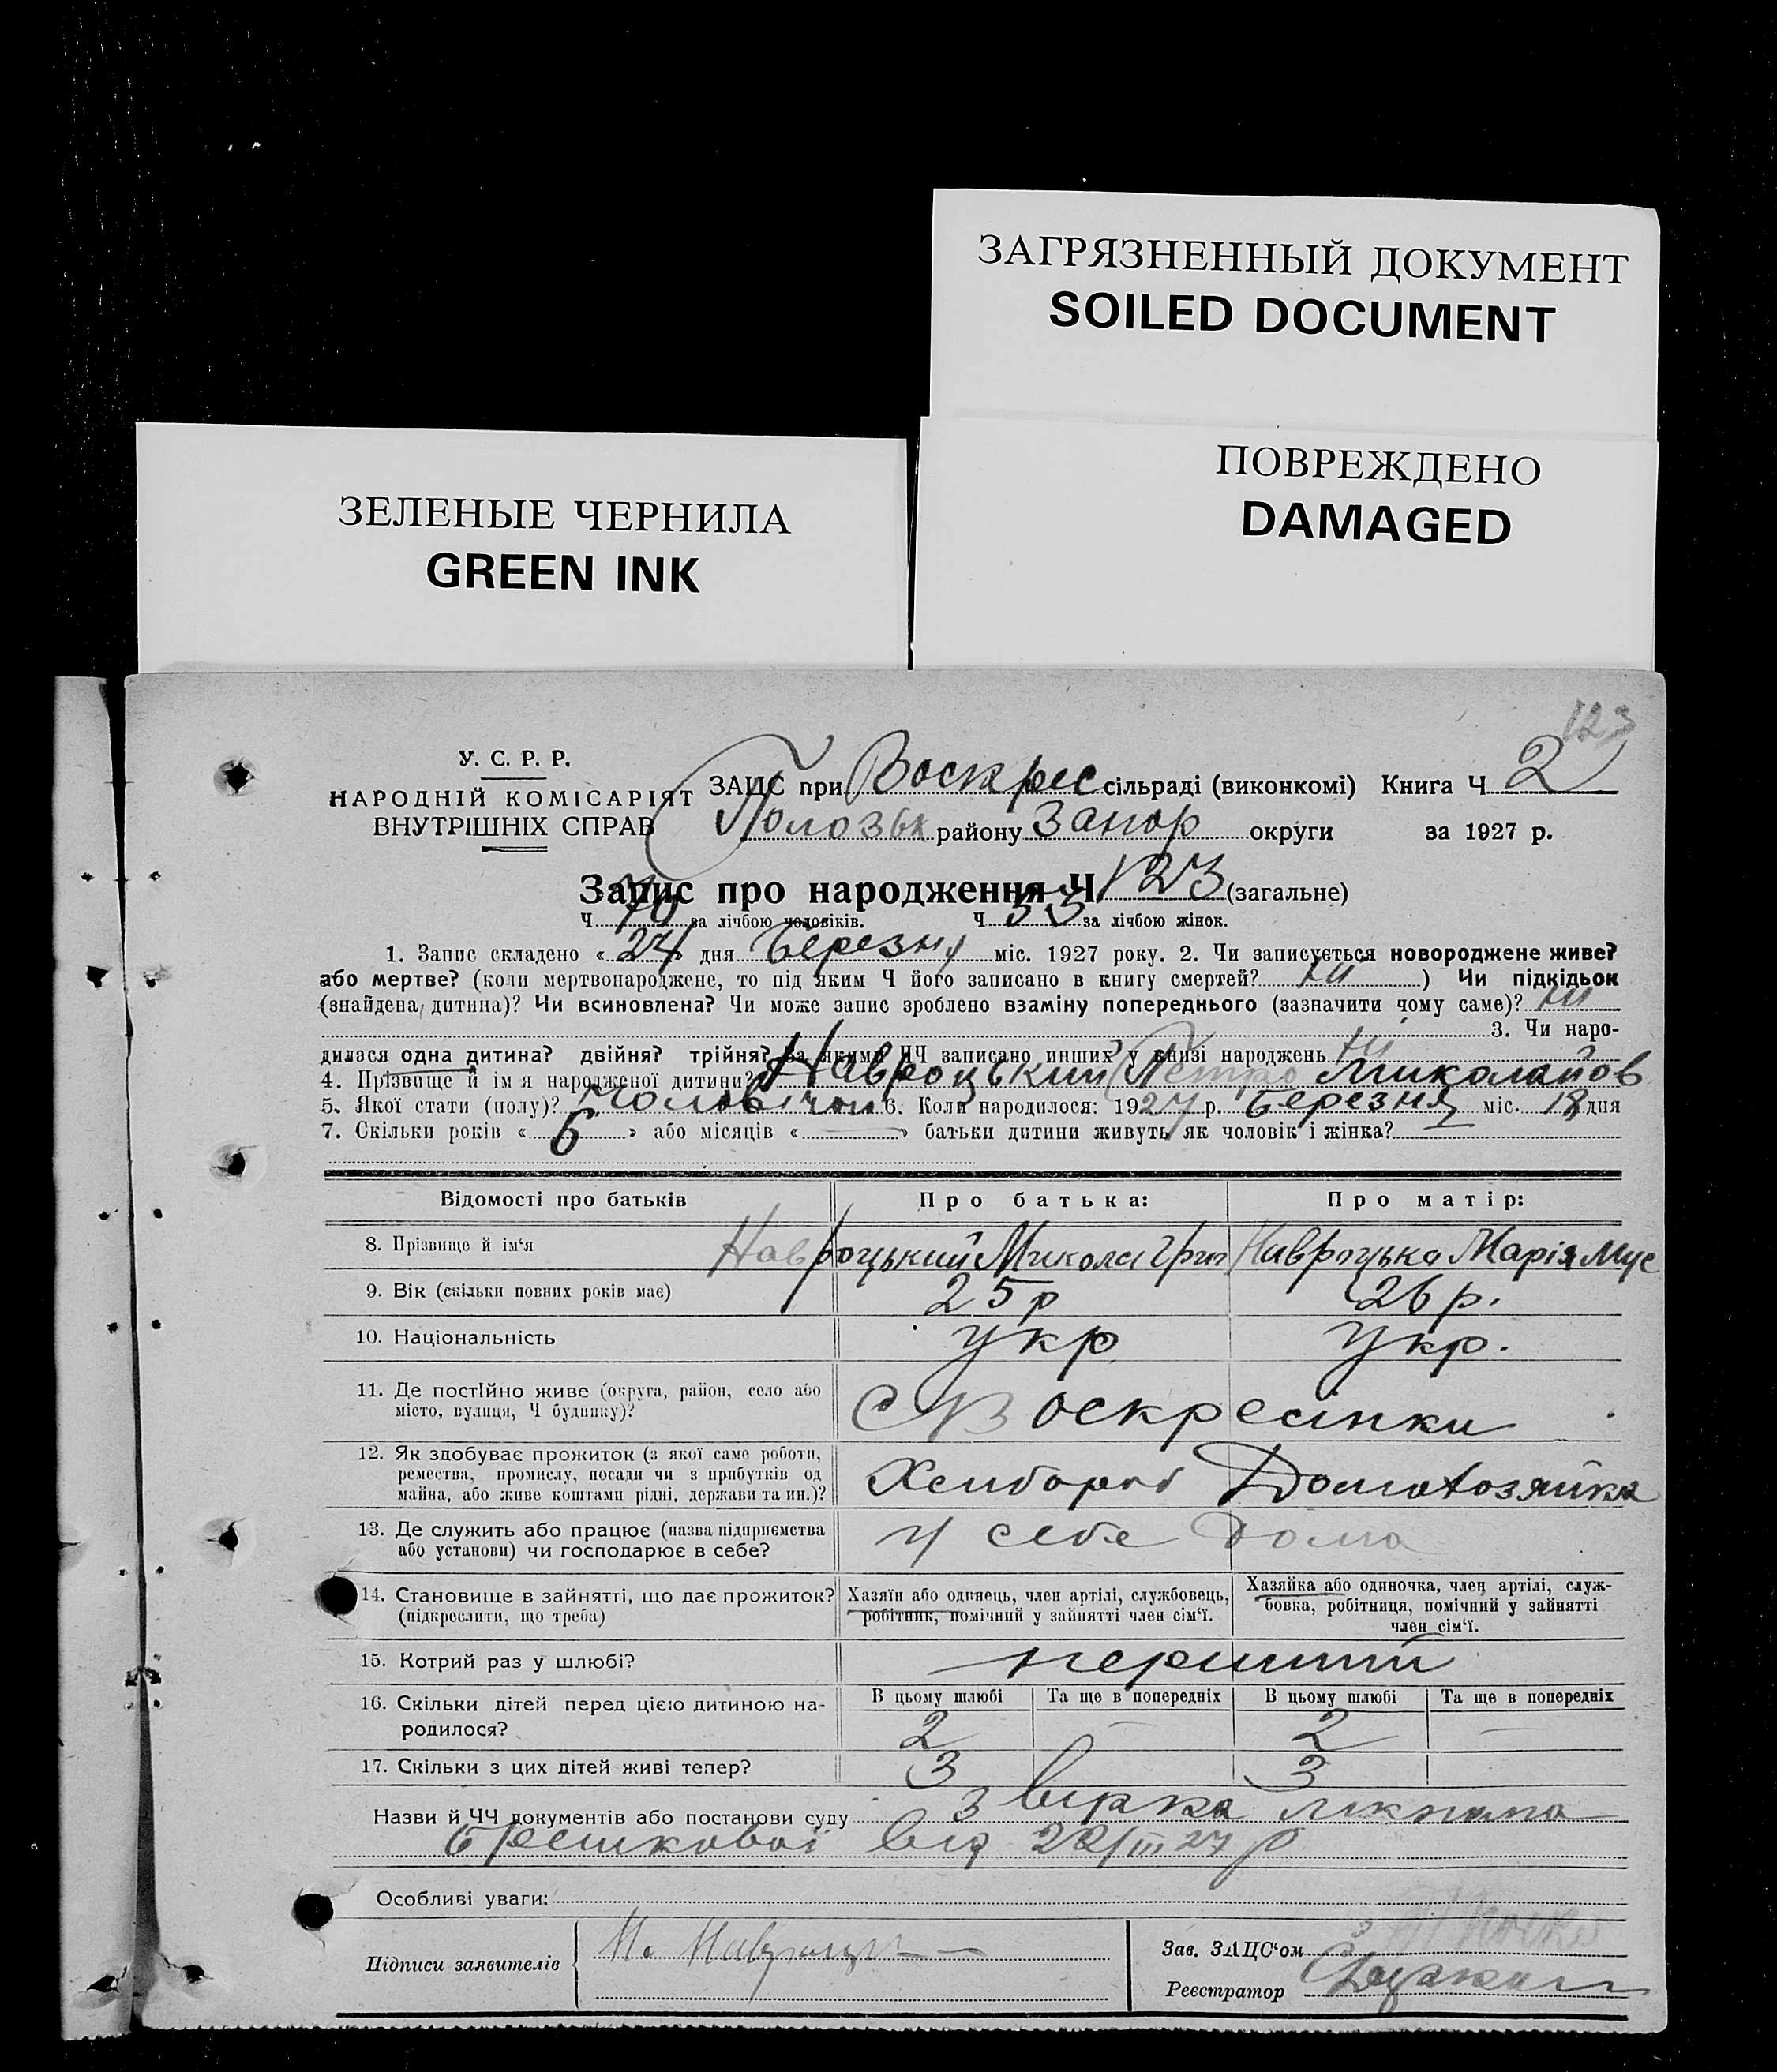 ЗАГРЯЗНЕННЫЙ ДОКУМЕНТ
SOILED DOCUMENT
ПОВРЕЖДЕНО
DAMAGED
ЗЕЛЕНЫЕ ЧЕРНИЛА
GREEN INK
123
У. С. Р. Р.
НАРОДНІЙ КОМІСАРІЯТ
ВНУТРІШНІХ СПРАВ
ЗАЦС при Воскрес сільраді (виконкомі) Книга Ч 2
Пологзьк району Запор округи за 1927 р.
Запис про народження Ч 123 (загальне)
Ч 70 за лічбою чоловіків. Ч 53 за лічбою жінок.
1. Запис складено «24» дня Березня міс. 1927 року. 2. Чи записується новороджене живе?
або мертве? (коли мертвонароджене, то під яким Ч його записано в книгу смертей? ні ) Чи підкідьок
(знайдена дитина)? Чи всиновлена? Чи може запис зроблено взаміну попереднього (зазначити чому саме)? ні
3. Чи наро-
дилася одна дитина? двійня? трійня? За якими ЧЧ записано инших у книзі народжень ні
4. Прізвище й ім'я народженої дитини? Навроцький Петро Миколайов
5. Якої стати (полу)? Чоловічои 6. Коли народилося: 1927 р. Березня міс. 18 дня
7. Скільки років « 6 » або місяців « — » батьки дитини живуть як чоловік і жінка? —
Відомості про батьків Про батька: Про матір:
8. Прізвище й ім'я Навроцький Микола Григ Навроцька Марія Мус
9. Вік (скільки повних років має) 25 р 26 р.
10. Національність укр укр.
11. Де постійно живе (округа, район, село або
місто, вулиця, Ч будинку)? с Воскресінки
12. Як здобуває прожиток (з якої саме роботи,
ремества, промислу, посади чи з прибутків од
майна, або живе коштами рідні, держави та ин.)? Хлібороб Домохозяйка
13. Де служить або працює (назва підприємства
або установи) чи господарює в себе? У себе дома
14. Становище в зайнятті, що дає прожиток?
(підкреслити, що треба)
Хазяїн або одинець, член артілі, службовець,
робітник, помічний у зайнятті член сім'ї.
Хазяйка або одиночка, член артілі, служ-
бовка, робітниця, помічний у зайнятті
член сім'ї.
15. Котрий раз у шлюбі? перший
16. Скільки дітей перед цією дитиною на-
родилося?
В цьому шлюбі Та ще в попередніх В цьому шлюбі Та ще в попередніх
2 — 2 —
17. Скільки з цих дітей живі тепер? 3 3
Назви й ЧЧ документів або постанови суду
від 22/III 27 р
Особливі уваги:
Підписи заявителів М. Навроцьк
Зав. ЗАЦС'ом
Реєстратор